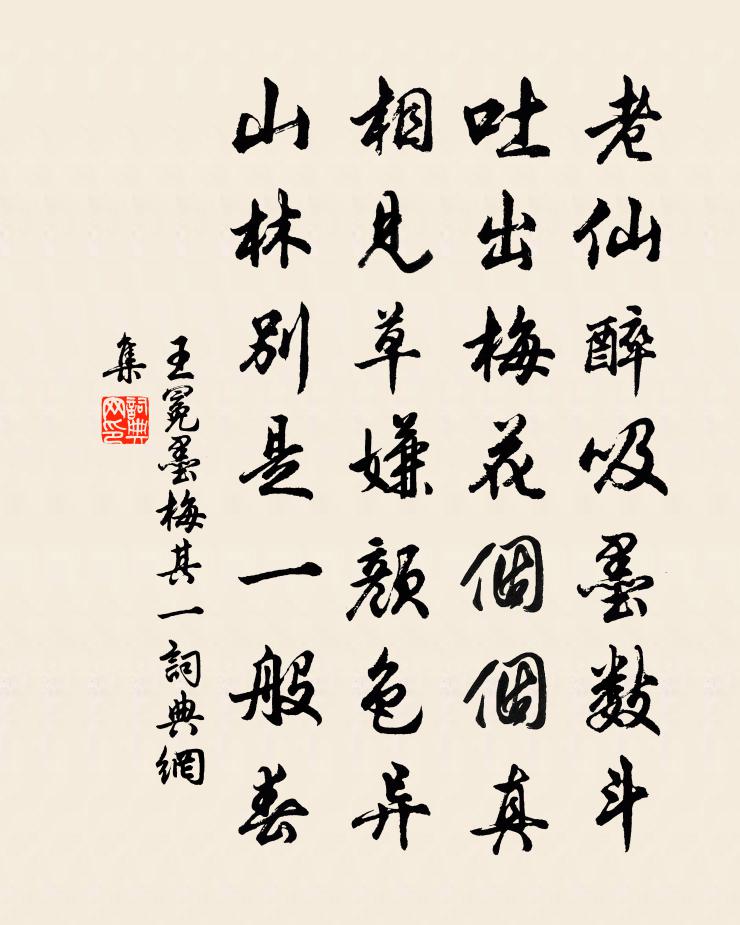 老仙醉吸墨数斗
吐出梅花個個真
相見草嫌顔色异
山林別是一般春
王冕墨梅其一詞典網
集
詞典
网印